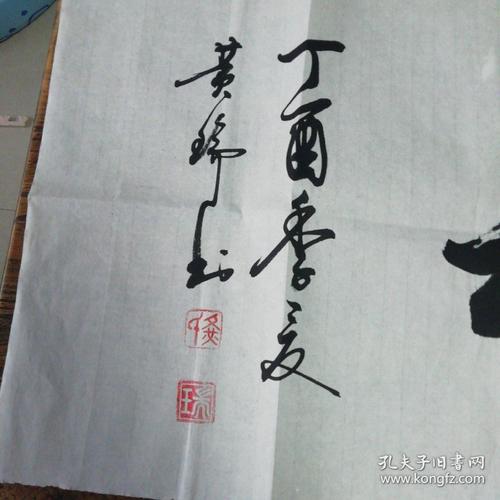 丁酉季夏
黄瑞书
孔夫子旧书网
www.kongfz.com